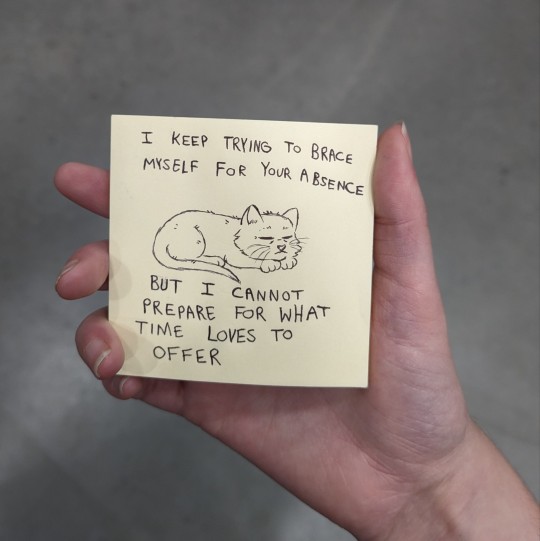 I KEEP TRYING TO BRACE
MYSELF FOR YOUR ABSENCE
BUT I CANNOT
PREPARE FOR WHAT
TIME LOVES TO
OFFER